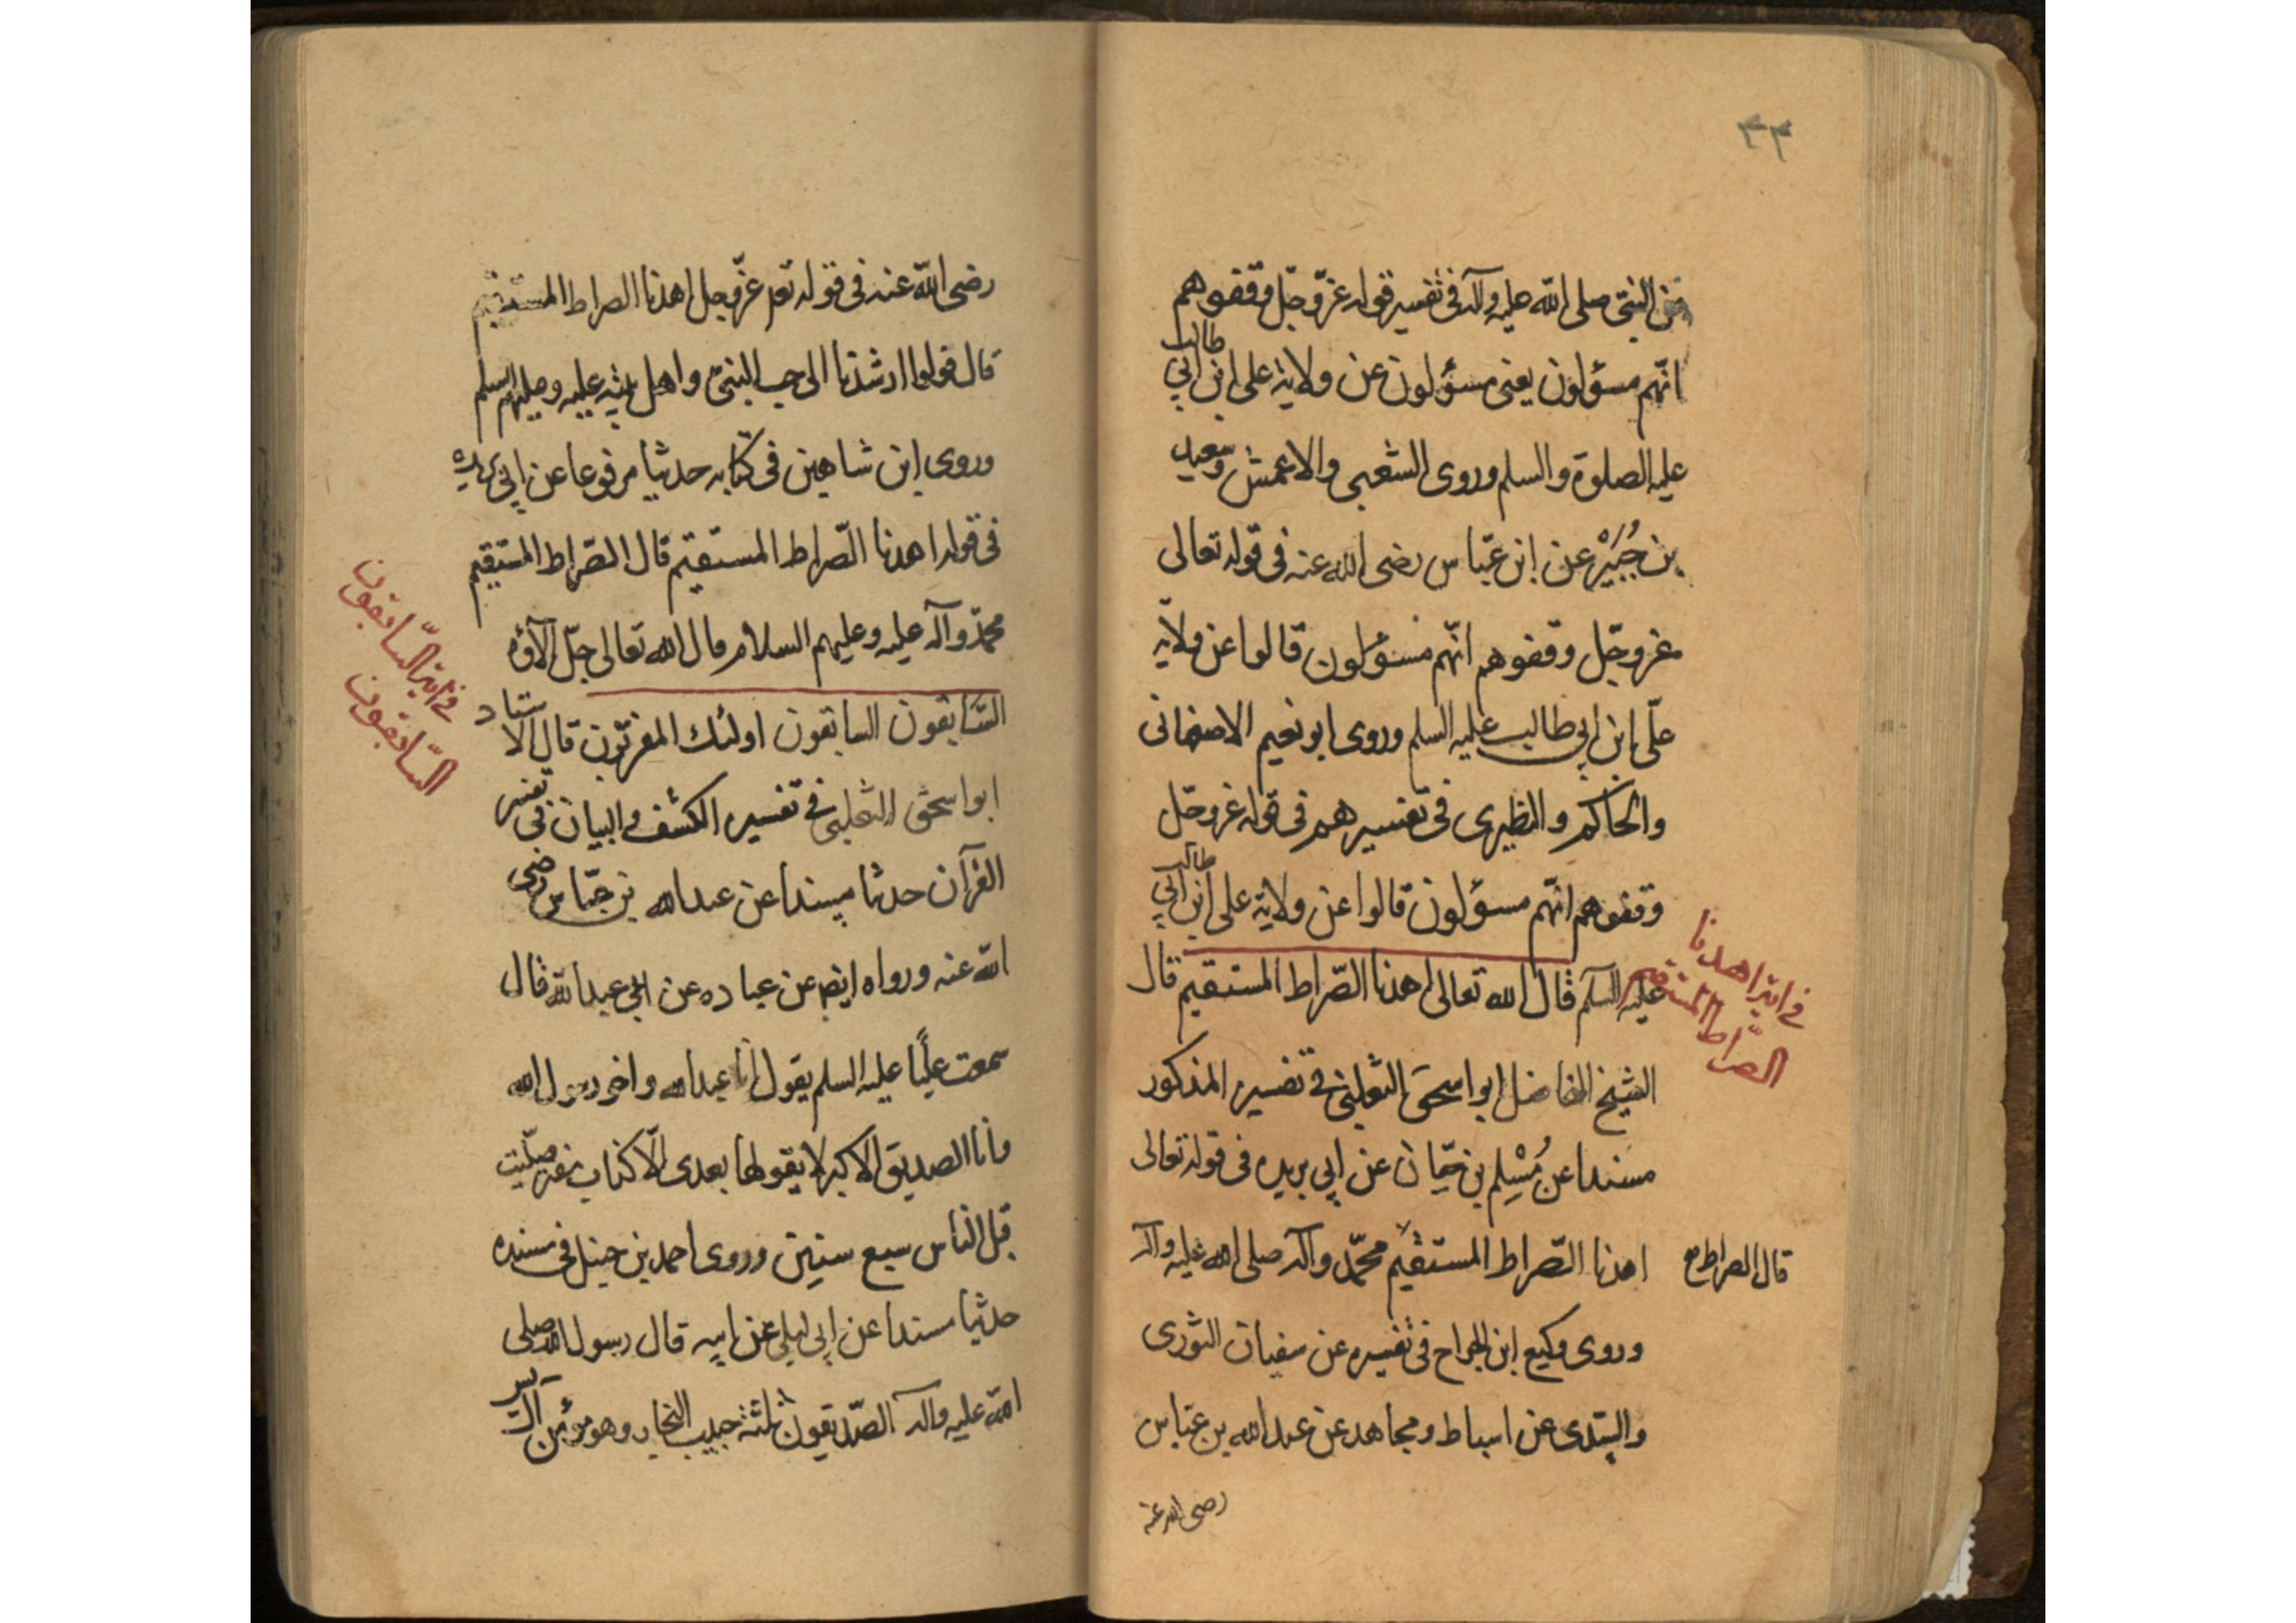 ٣٣
عن النبي صلى الله عليه وآله في تفسير قوله عز وجل وقفوهم
انّهم مسؤلون يعنى مسؤلون عن ولاية على ابن ابي طالب
عليه الصلوة والسلم وروى الشعبي والاعمش وسعيد
بن جُبَيْر عن ابن عبّاس رضى الله عنه في قوله تعالى
عز وجّل وقفوهم انّهم مسؤلون قالوا عن ولاية
علّى ابن ابي طالب عليه السلم وروى ابو نعيم الاصفهانى
والحاكم والنظيرى في تفسيرهم في قوله عز وجّل
وقفوهم انّهم مسؤلون قالوا عن ولاية على ابن ابي طالب
عليه السلم قال الله تعالى اهدنا الصّراط المستقيم قال
في اية اهدنا
الصّراط المستقيم
الشيخ الفاضل ابو اسحق الثعلبى في تفسيره المذكور
مسندا عن مُسْلِم بن حيّان عن ابي بريده في قوله تعالى
اهدنا الصّراط المستقيم محمّد وآله صلى الله عليه وآله
قال الصراط
وروى وكيع ابن الجراح في تفسيره عن سفيان الثورى
والسّدى عن اسباط ومجاهد عن عبد الله بن عبّاس
رضى الله عنه
رضى الله عنه في قوله تع عزّ وجل اهدنا الصراط المستقيم
قال قولوا ارشدنا الى حب النبىّ واهل بيته عليه وعليهم السلم
وروى ابن شاهين في كتابه حديثا مرفوعا عن ابي بريده
في قوله اهدنا الصّراط المستقيم قال الصّراط المستقيم
محمّد وآله عليه وعليهم السلام قال الله تعالى جلّ الآؤه
السّابقون السابقون اولئك المقرّبون قال الاستاد
في اية السّابقون
السّابقون
ابو اسحق الثعلبى في تفسيره الكشف والبيان في تفسير
القرآن حديثا مسندا عن عبد الله بن عبّاس رضى
الله عنه ورواه ايضا عن عباده عن ابي عبد الله قال
سمعت عليًّا عليه السلم يقول انا عبد الله واخو رسول الله
وانا الصديق الاكبر لا يقولها بعدى الّا كذاب مفتر صلّيت
قبل الناس سبع سنين وروى احمد بن حنبل في مسنده
حديثا مسندا عن ابي ليلى عن ابيه قال رسول الله صلى
الله عليه وآله الصّديقون ثلثة حبيب النجار وهو مؤمن آل يس